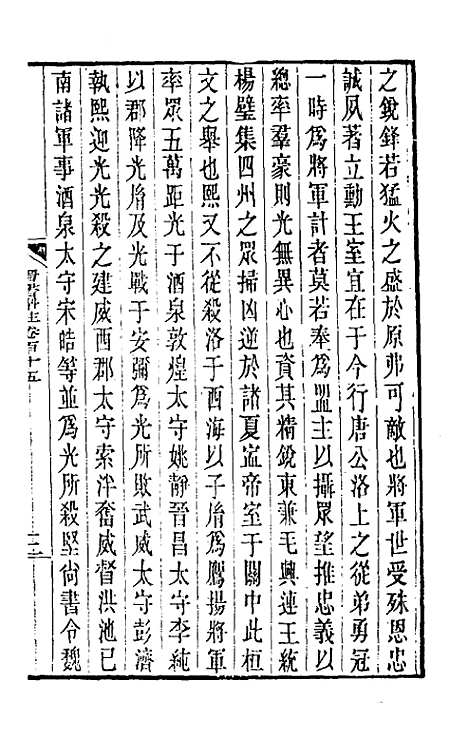 之銳鋒若猛火之盛於原弗可敵也將軍世受殊恩忠
誠夙著立勳王室宜在于今行唐公洛上之從弟勇冠
一時爲將軍計者莫若奉爲盟主以攝眾望推忠義以
總率羣豪則光無異心也資其精銳東兼毛興連王統
楊璧集四州之眾掃凶逆於諸夏寍帝室于關中此桓
文之舉也熙又不從殺洛于西海以子胤爲鷹揚將軍
率眾五萬距光于酒泉敦煌太守姚靜晉昌太守李純
以郡降光胤及光戰于安彌爲光所敗武威太守彭濟
執熙迎光光殺之建威西郡太守索泮奮威督洪池已
南諸軍事酒泉太守宋皓等並爲光所殺堅尙書令魏
晉書斠注卷百十五